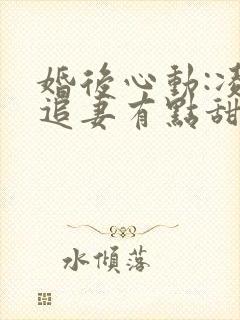 婚後心動:凌
追妻有點甜
水傾落